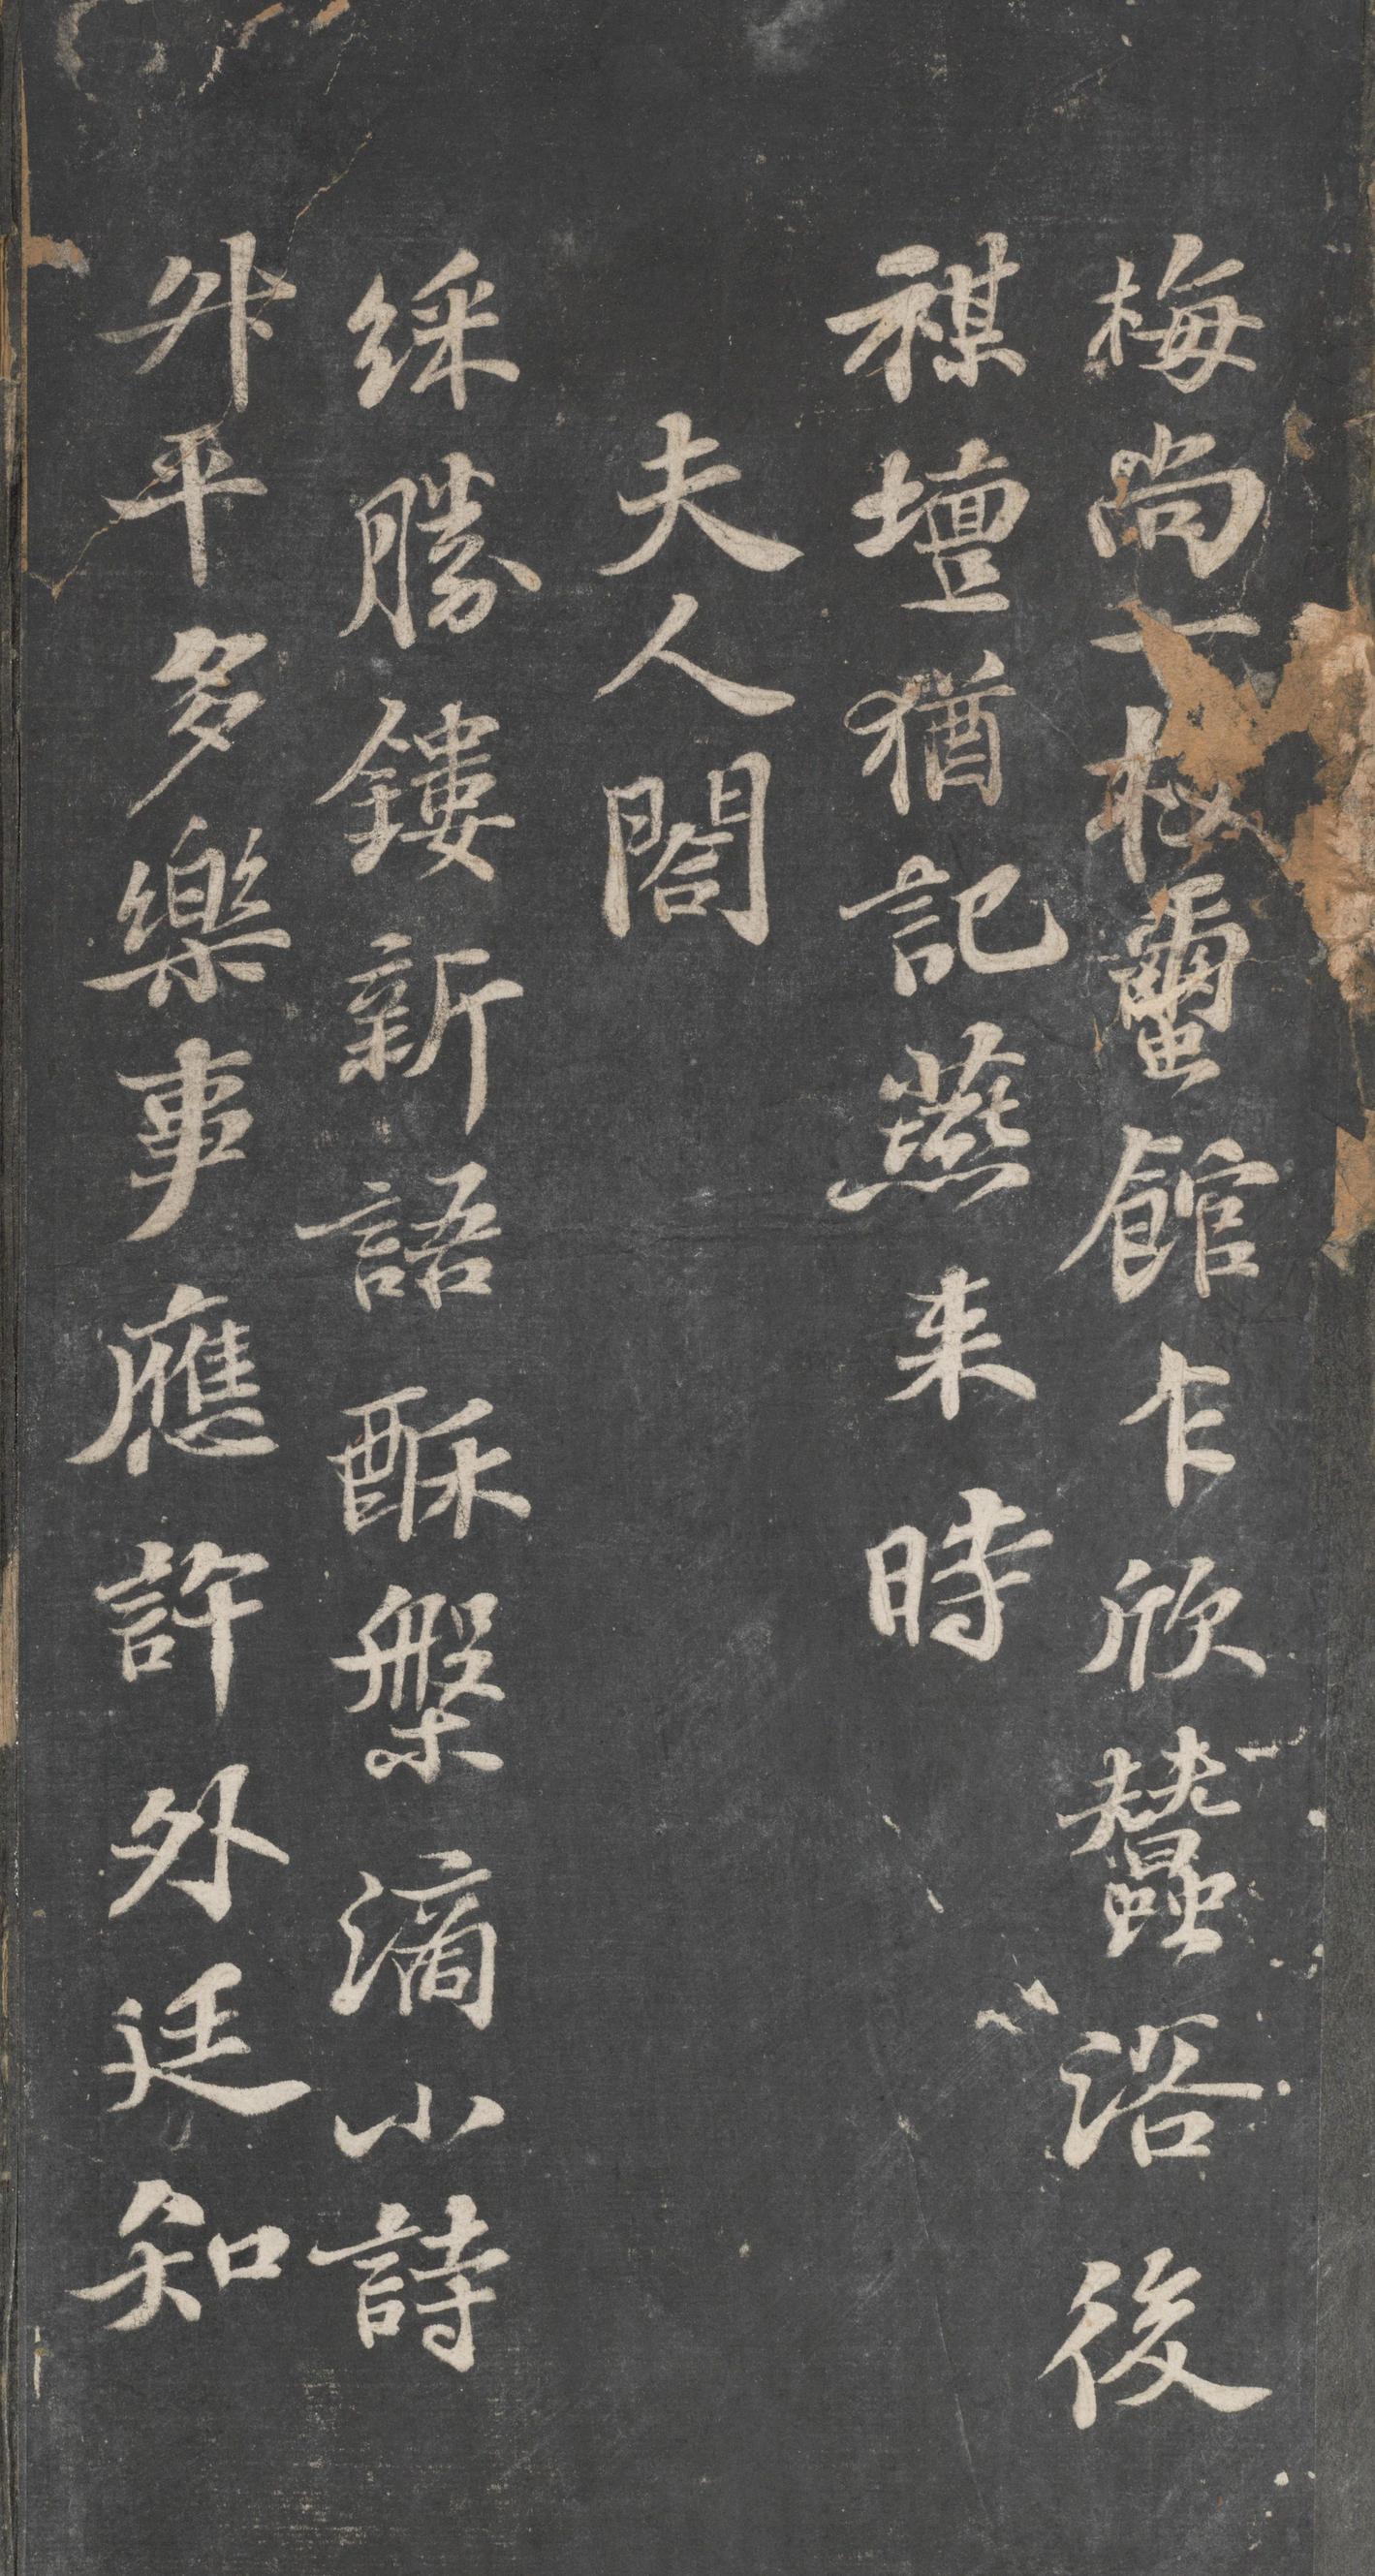 梅尚一枝蠒館乍欣蠶浴後
禖壇猶記燕来時
夫人閤
綵勝鏤新語酥槃滴小詩
升平多樂事應許外廷知